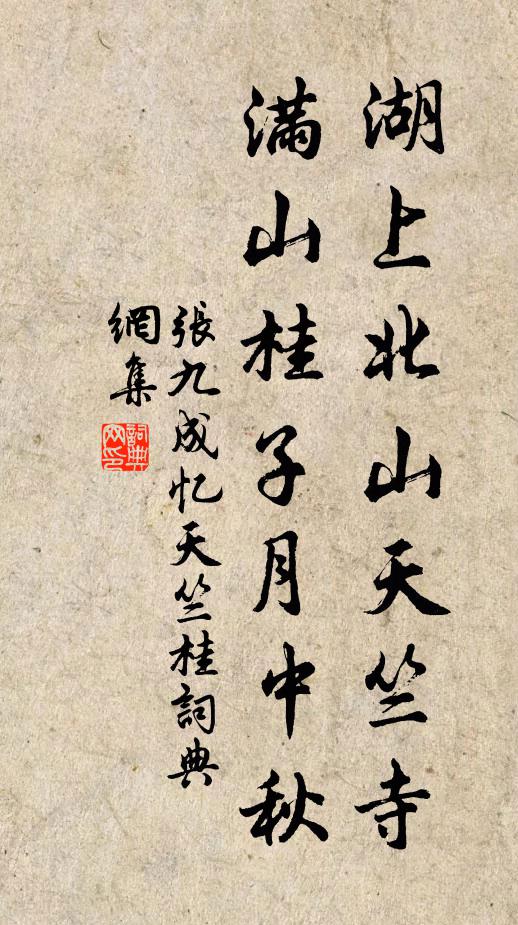 湖上北山天竺寺
满山桂子月中秋
張九成忆天竺桂詞典
網集
詞典
网印